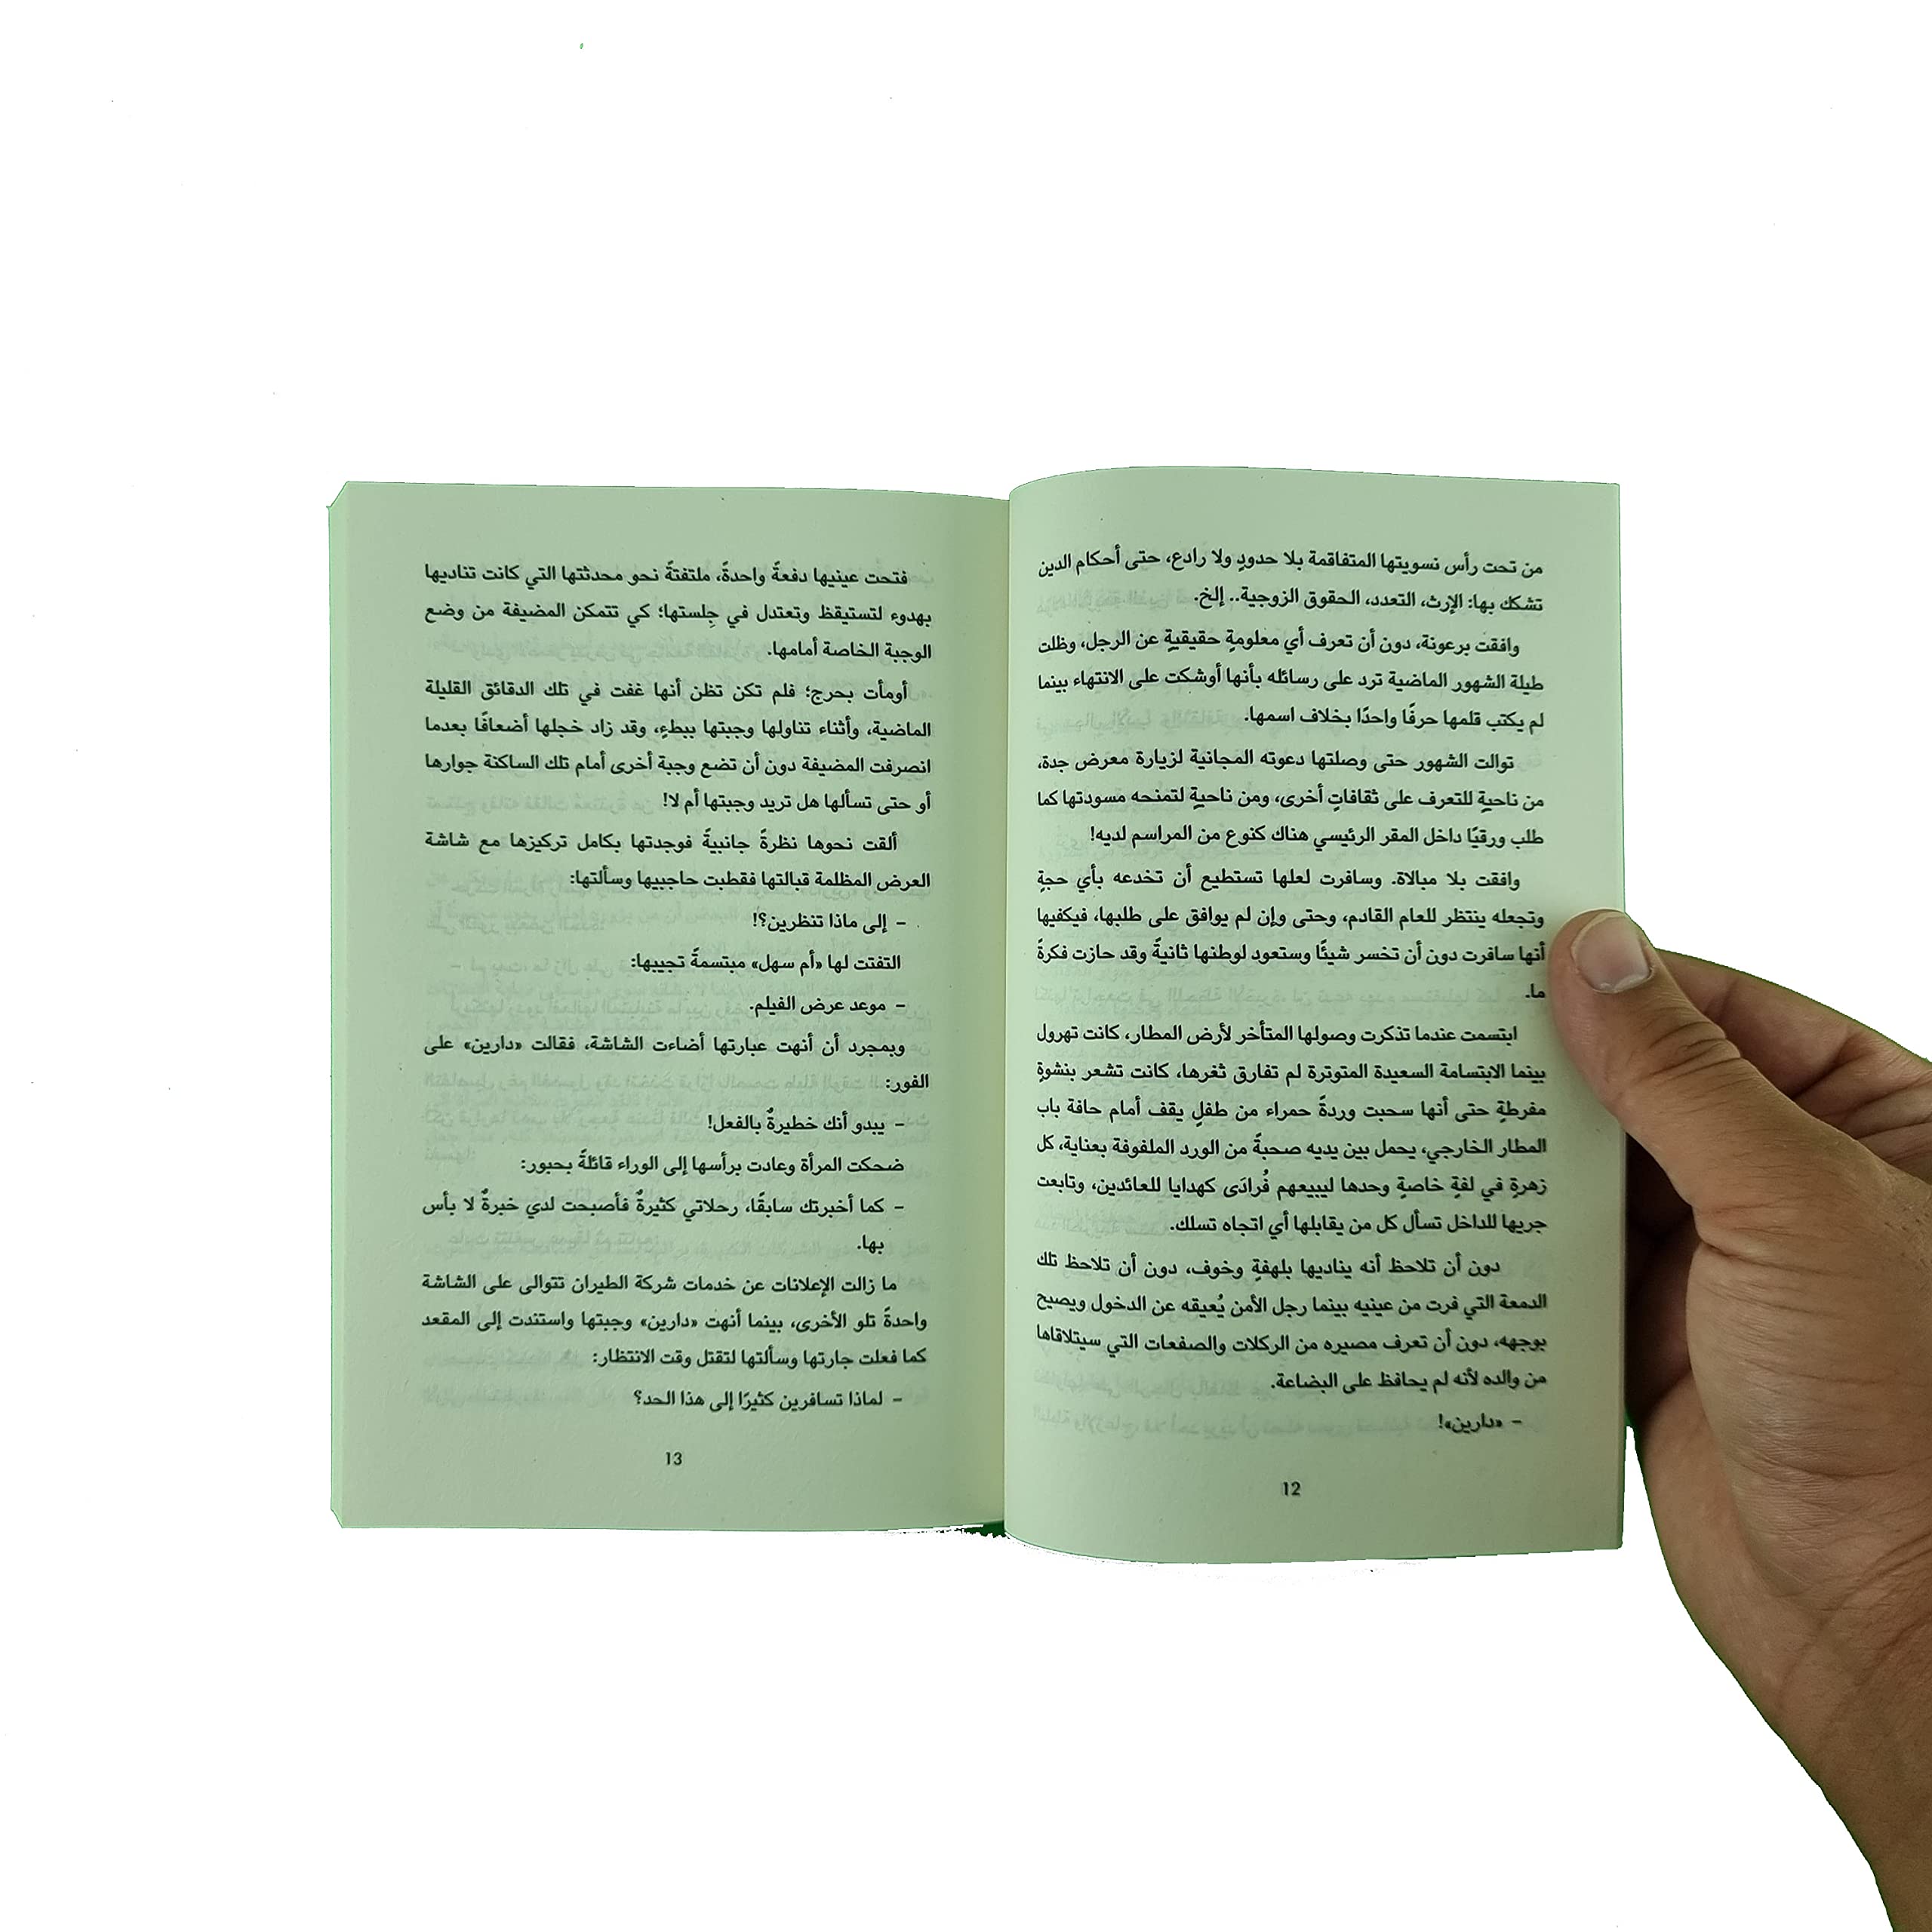 من تحت رأس نسويتها المتفاقمة بلا حدودٍ ولا رادع، حتى أحكام الدين
تشكك بها: الإرث، التعدد، الحقوق الزوجية.. إلخ.
وافقت برعونة، دون أن تعرف أي معلومةٍ حقيقيةٍ عن الرجل، وظلت
طيلة الشهور الماضية ترد على رسائله بأنها أوشكت على الانتهاء بينما
لم يكتب قلمها حرفًا واحدًا بخلاف اسمها.
توالت الشهور حتى وصلتها دعوته المجانية لزيارة معرض جدة،
من ناحيةٍ للتعرف على ثقافاتٍ أخرى، ومن ناحيةٍ لتمنحه مسودتها كما
طلب ورقيًا داخل المقر الرئيسي هناك كنوع من المراسم لديه!
وافقت بلا مبالاة. وسافرت لعلها تستطيع أن تخدعه بأي حجةٍ
وتجعله ينتظر للعام القادم، وحتى وإن لم يوافق على طلبها، فيكفيها
أنها سافرت دون أن تخسر شيئًا وستعود لوطنها ثانيةً وقد حازت فكرةً
ما.
ابتسمت عندما تذكرت وصولها المتأخر لأرض المطار، كانت تهرول
بينما الابتسامة السعيدة المتوترة لم تفارق ثغرها، كانت تشعر بنشوةٍ
مفرطةٍ حتى أنها سحبت وردةً حمراء من طفلٍ يقف أمام حافة باب
المطار الخارجي، يحمل بين يديه صحبةً من الورد الملفوفة بعناية، كل
زهرةٍ في لفةٍ خاصةٍ وحدها ليبيعهم فُرادَى كهدايا للعائدين، وتابعت
جريها للداخل تسأل كل من يقابلها أي اتجاه تسلك.
دون أن تلاحظ أنه يناديها بلهفةٍ وخوف، دون أن تلاحظ تلك
الدمعة التي فرت من عينيه بينما رجل الأمن يُعيقه عن الدخول ويصيح
بوجهه، دون أن تعرف مصيره من الركلات والصفعات التي سيتلاقاها
من والده لأنه لم يحافظ على البضاعة.
– «دارين»!
12
فتحت عينيها دفعةً واحدةً، ملتفتةً نحو محدثتها التي كانت تناديها
بهدوء لتستيقظ وتعتدل في جِلستها؛ كي تتمكن المضيفة من وضع
الوجبة الخاصة أمامها.
أومأت بحرج؛ فلم تكن تظن أنها غفت في تلك الدقائق القليلة
الماضية، وأثناء تناولها وجبتها ببطءٍ، وقد زاد خجلها أضعافًا بعدما
انصرفت المضيفة دون أن تضع وجبة أخرى أمام تلك الساكنة جوارها
أو حتى تسألها هل تريد وجبتها أم لا!
ألقت نحوها نظرةً جانبيةً فوجدتها بكامل تركيزها مع شاشة
العرض المظلمة قبالتها فقطبت حاجبيها وسألتها:
– إلى ماذا تنظرين؟!
التفتت لها «أم سهل» مبتسمةً تجيبها:
– موعد عرض الفيلم.
وبمجرد أن أنهت عبارتها أضاءت الشاشة، فقالت «دارين» على
الفور:
– يبدو أنك خطيرةٌ بالفعل!
ضحكت المرأة وعادت برأسها إلى الوراء قائلةً بحبور:
– كما أخبرتك سابقًا، رحلاتي كثيرةٌ فأصبحت لدي خبرةٌ لا بأس
بها.
ما زالت الإعلانات عن خدمات شركة الطيران تتوالى على الشاشة
واحدةً تلو الأخرى، بينما أنهت «دارين» وجبتها واستندت إلى المقعد
كما فعلت جارتها وسألتها لتقتل وقت الانتظار:
– لماذا تسافرين كثيرًا إلى هذا الحد؟
13